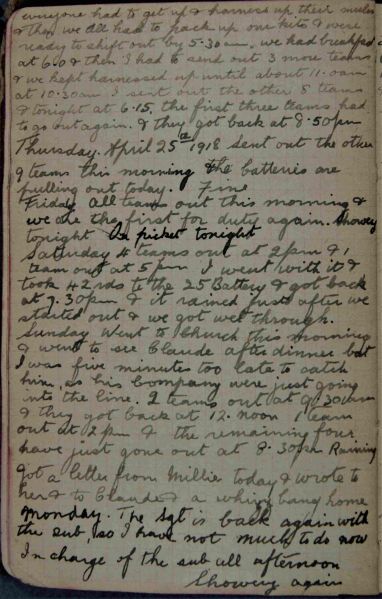 everyone had to get up & harness up their mules
& then we all had to pack up our kits & were
ready to shift out by 5.30am, we had breakfast
at 6.0 & then I had to send out 3 more teams
& we kept harnessed up until about 11.0am
at 10.30am I sent out the other 8 teams
& tonight at 6.15, the first three teams had
to go out again. & they got back at 8.50pm
Thursday. April 25th 1918 Sent out the other
9 teams this morning & the batteries are
pulling out today. Fine
Friday All teams out this morning &
we are the first for duty again. Showery
tonight On picket tonight
Saturday 4 teams out at 2pm & 1
team out at 5pm I went with it &
took 42 rds to the 25 Battery & got back
at 9.30pm & it rained just after we
started out & we got wet through.
Sunday Went to Church this morning
& went to see Claude after dinner but
I was five minutes too late to catch
him, as his Company were just going
into the line. 2 teams out at 9.30am
& they got back at 12. noon 1 team
out at 2pm & the remaining four
have just gone out at 8.30pm Raining
got a letter from Millie today & wrote to
her & to Claude & a whizz bang home
Monday. The Sgt is back again with
the sub, so I have not much to do now
In charge of the sub all afternoon
Showery again